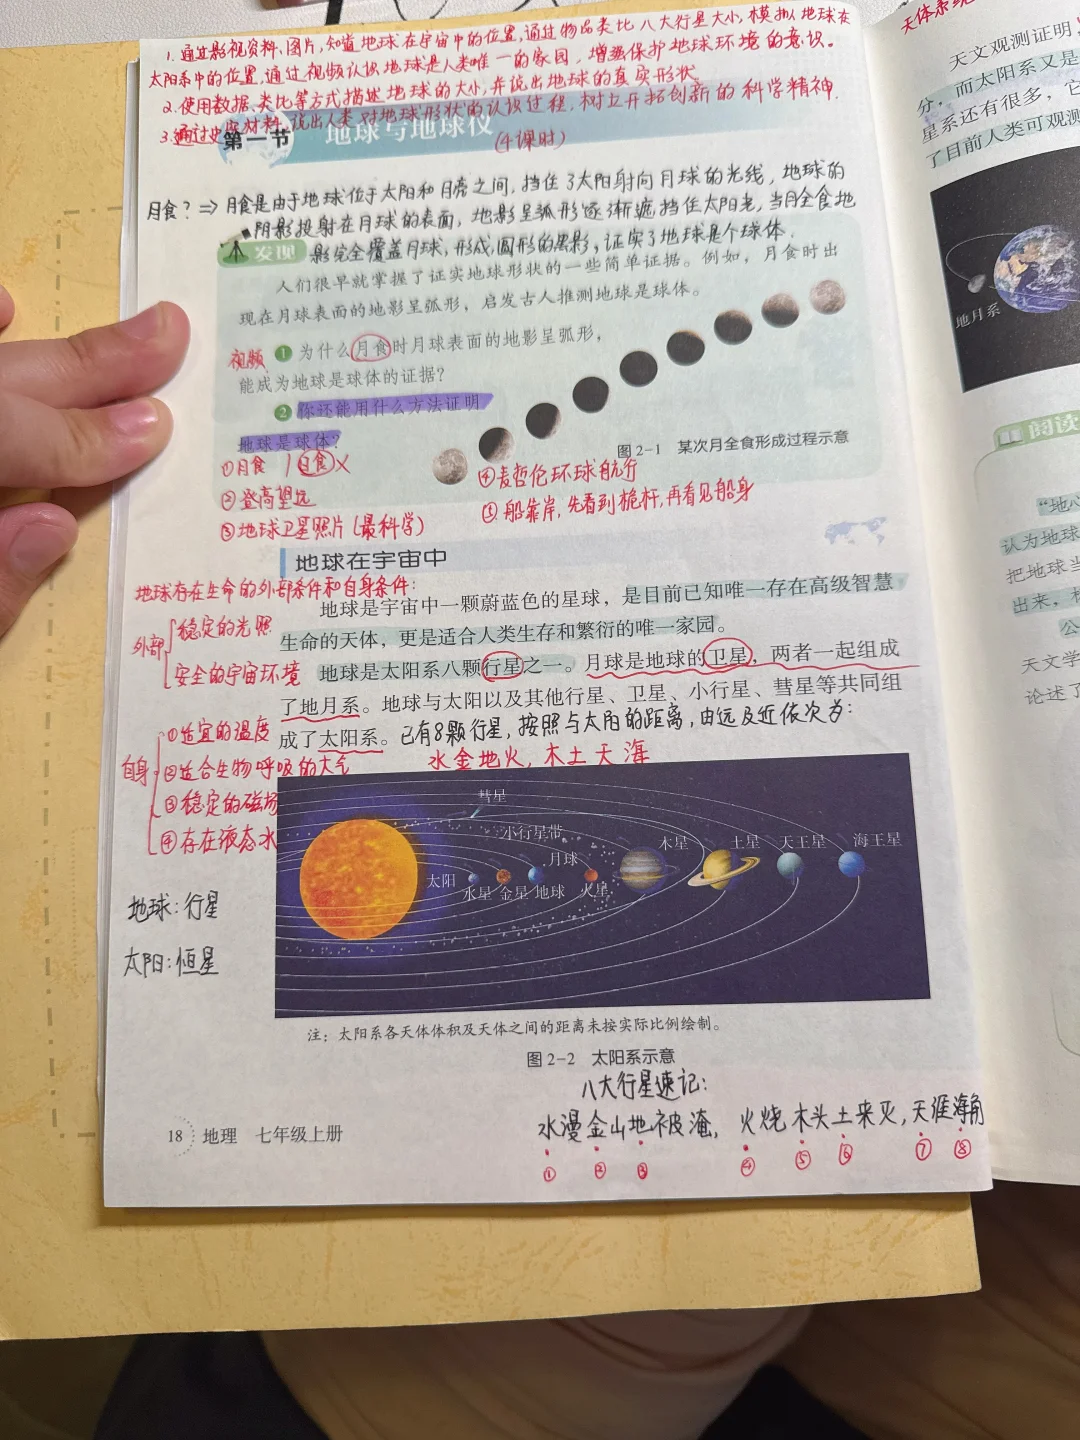 1. 通过影视资料、图片,知道地球在宇宙中的位置,通过物品类比八大行星大小,模拟地球在
太阳系中的位置,通过视频认识地球是人类唯一的家园,增强保护地球环境的意识。
2. 使用数据、类比等方式描述地球的大小,并说出地球的真实形状。
3. 通过史实材料,说出人类对地球形状的认识过程,树立开拓创新的科学精神.
第一节 地球与地球仪
(4课时)
月食?⇒月食是由于地球位于太阳和月亮之间,挡住了太阳射向月球的光线,地球的
阴影投射在月球的表面,地影呈弧形逐渐遮挡住太阳光,当月全食地
影完全覆盖月球,形成圆形的黑影,证实了地球是个球体.
发现
人们很早就掌握了证实地球形状的一些简单证据。例如,月食时出
现在月球表面的地影呈弧形,启发古人推测地球是球体。
视频
1 为什么月食时月球表面的地影呈弧形,
能成为地球是球体的证据?
2 你还能用什么方法证明
地球是球体?
图 2-1 某次月全食形成过程示意
①月食 / 日食×
②登高望远
③地球卫星照片(最科学)
④麦哲伦环球航行
⑤船靠岸,先看到桅杆,再看见船身
地球在宇宙中
地球存在生命的外部条件和自身条件:
外部
稳定的光照
安全的宇宙环境
自身
①适宜的温度
②适合生物呼吸的大气
③稳定的磁场
④存在液态水
地球是宇宙中一颗蔚蓝色的星球,是目前已知唯一存在高级智慧
生命的天体,更是适合人类生存和繁衍的唯一家园。
地球是太阳系八颗行星之一。月球是地球的卫星,两者一起组成
了地月系。地球与太阳以及其他行星、卫星、小行星、彗星等共同组
成了太阳系。已有8颗行星,按照与太阳的距离,由远及近依次为:
水金地火,木土天海
彗星
小行星带
月球
太阳
水星
金星
地球
火星
木星
土星
天王星
海王星
地球:行星
太阳:恒星
注:太阳系各天体体积及天体之间的距离未按实际比例绘制。
图 2-2 太阳系示意
八大行星速记:
水漫金山地被淹,火烧木头土来灭,天涯海角
① ② ③ ④ ⑤ ⑥ ⑦ ⑧
18 地理 七年级上册
天体系统
天文观测证明,
分,而太阳系又是
星系还有很多,它
了目前人类可观测
地月系
阅读
“地心
认为地球
把地球当
出来,
公
天文学
论述了